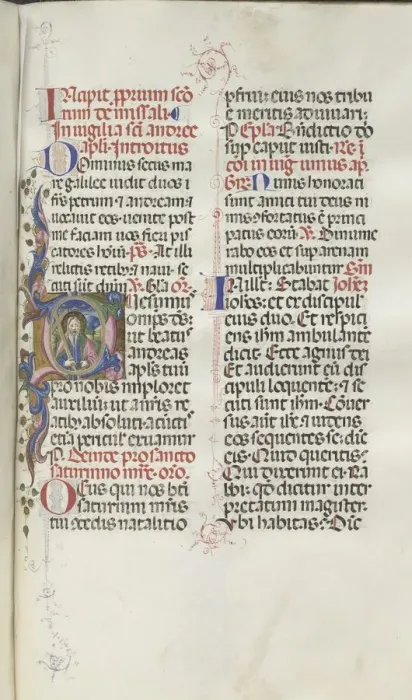 Incipit pprium scō
rum de missali.
In vigilia scī andree
apli. Introitus
Dominus secus ma
re galilee vidit duos f
r̄es petrum ⁊ andream ⁊
vocavit eos. venite post
me faciam vos fieri pis
catores homīū. ps. At illi
relictis retibꝫ ⁊ navi se
cuti sūt dūm. V. Gla. or̄.
Quesumus
omps d̄s.
ut beatus
andreas
apls tuus
pro nobis imploret
auxilium. ut a nr̄is re
atibꝫ absoluti. a cunctis
etiā periculis eruamur
P. Deinde pro sancto
saturnino mr̄e. oro.
Deus qui nos bti
saturnini mr̄is
tui cōcedis natalitio
pfrui. eius nos tribue
meritis adiuvari.
P. Epla. Bn̄dictio dō
sup caput iusti. Re. ī
coī in vig. unius ap.
Gr̄. Nimis honorati
sunt amici tui deus ni
mis cōfortatus ē princi
patus eorū. V. Dinume
rabo eos et sup arenam
multiplicabuntur. Eūn
In ille. Stabat Johes.
iohēs. et ex discipul
eius duo. Et respici
ens ihm ambulantē
dicit. Ecce agnus dei
Et audierunt eū dis
cipuli loquentē. ⁊ se
cuti sunt ihm. Cōver
sus aūt ihs ⁊ videns
eos sequentes se. dic
eis. Quid queritis?
Qui dixerunt ei. Ra
bbi. qd dicitur inter
pretatum magister.
Vbi habitas? Dic̄